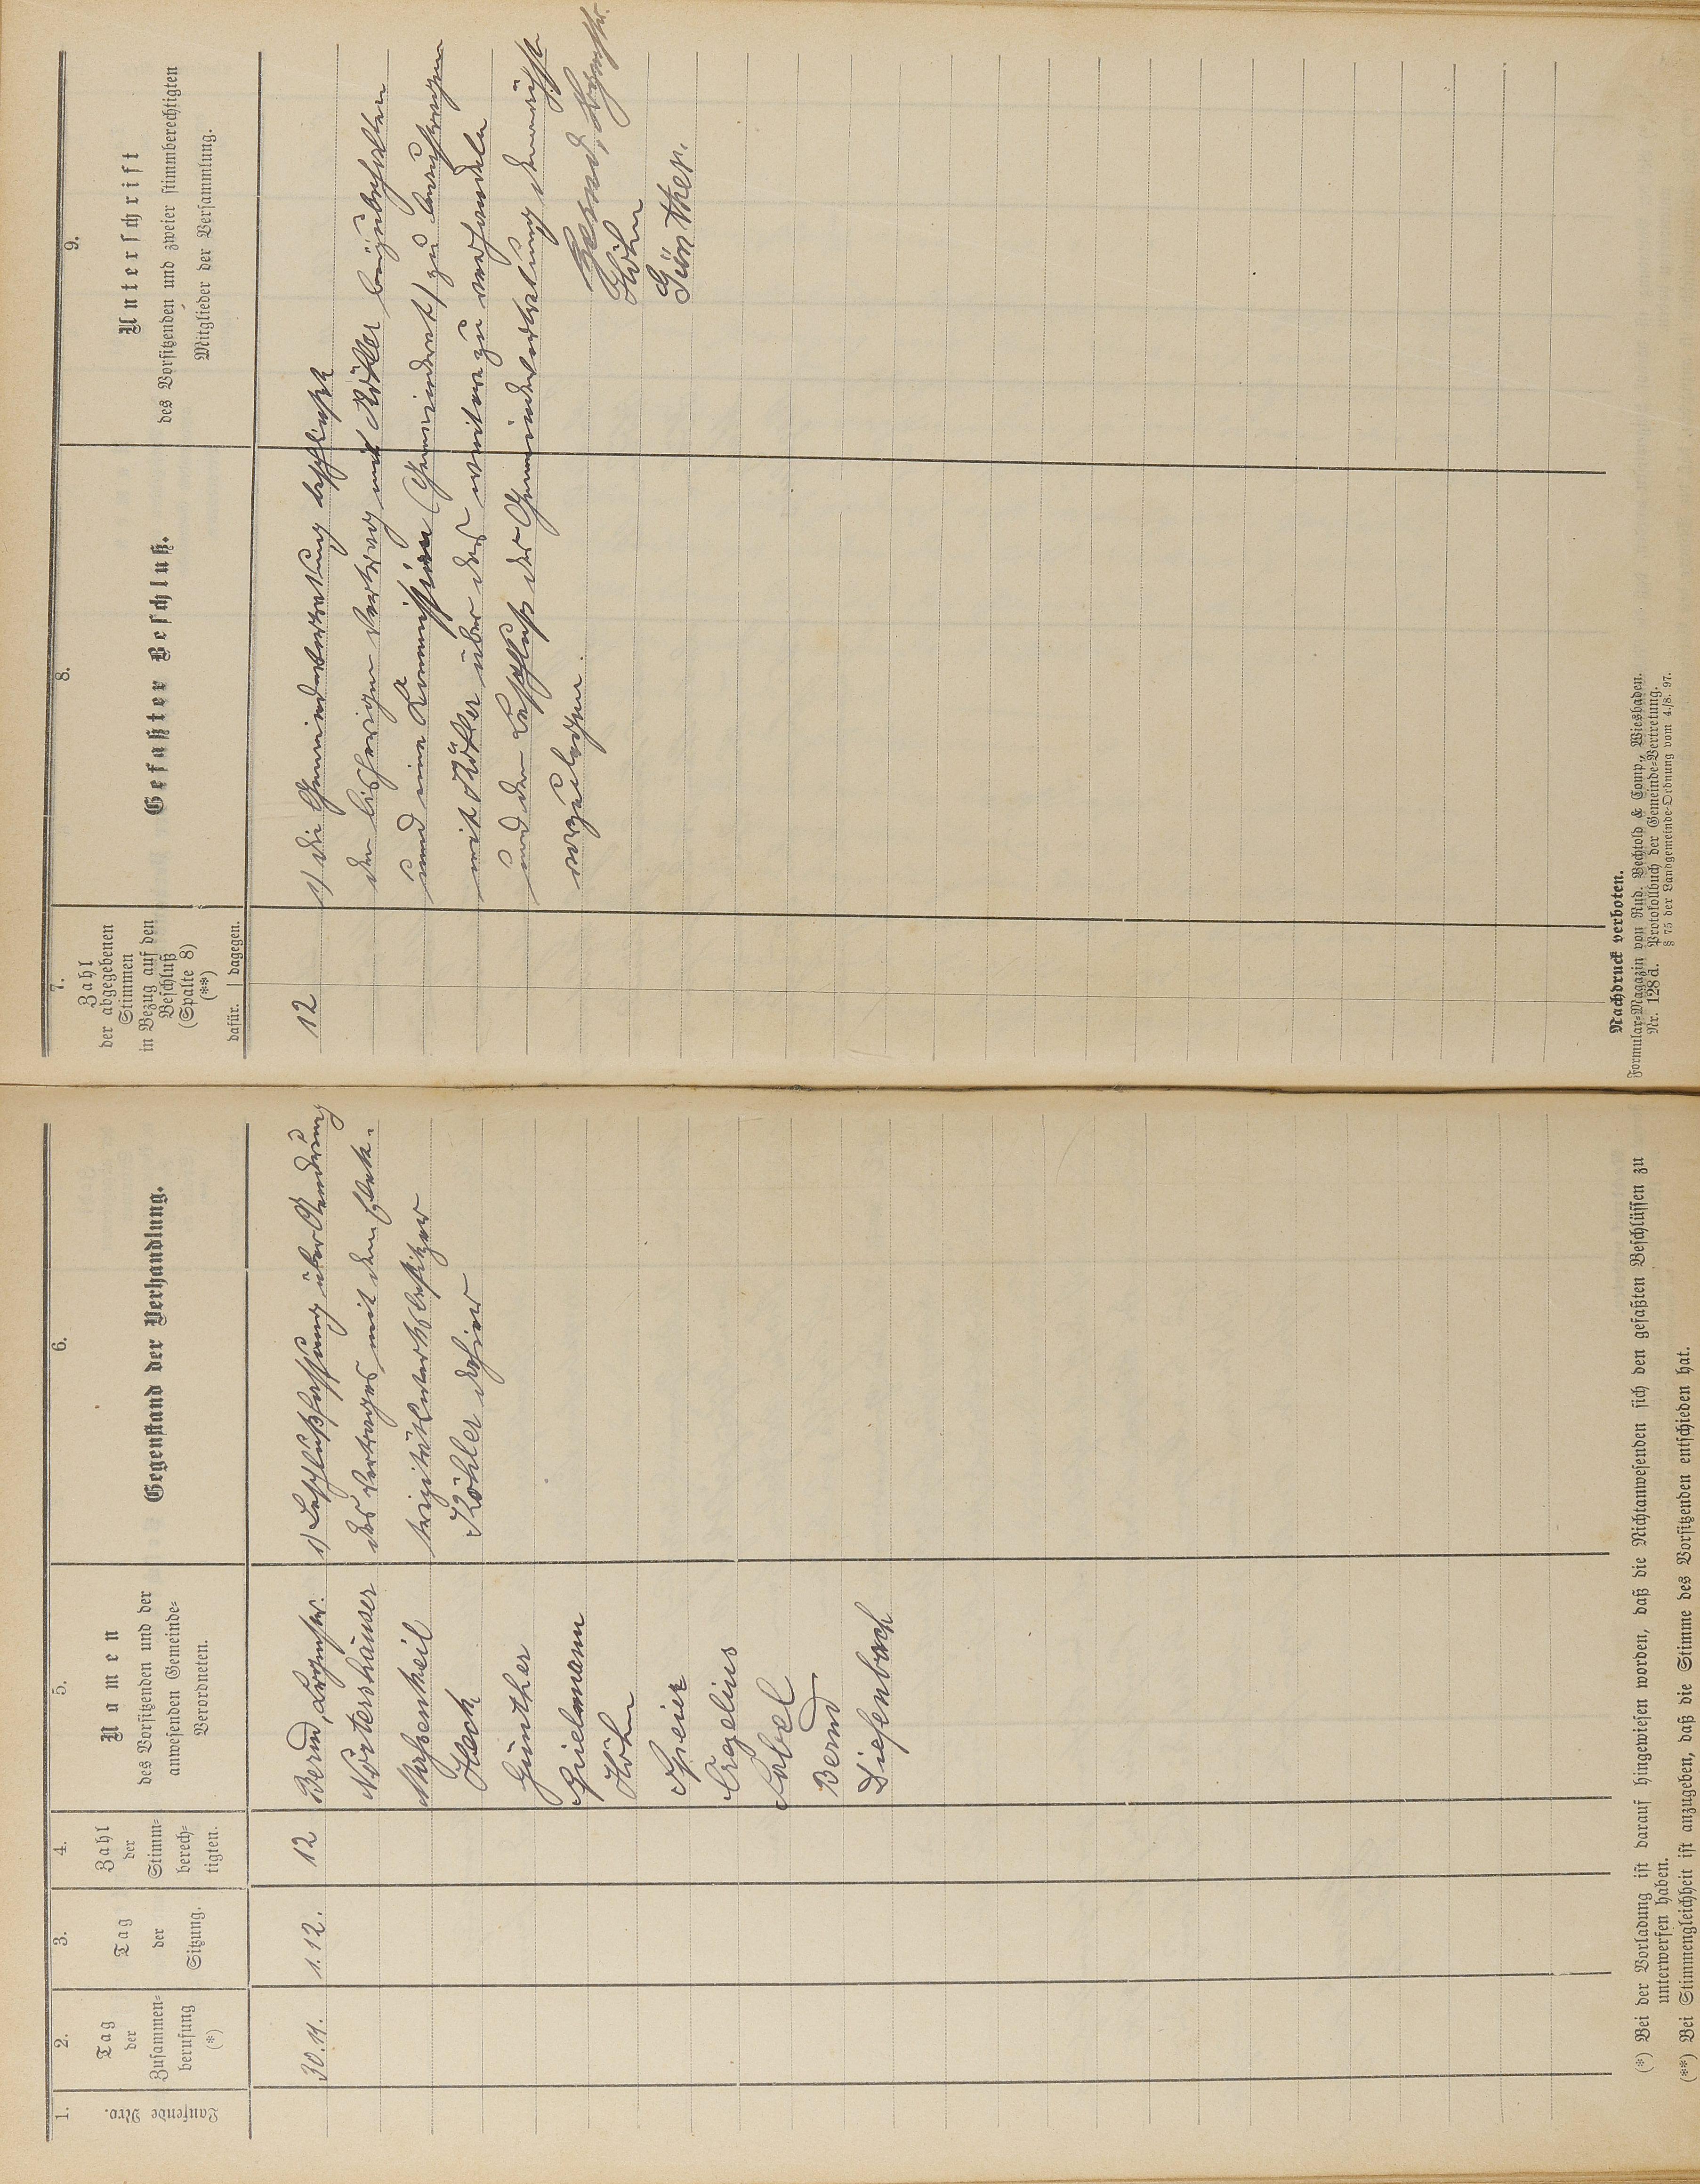 1.
Laufende Nro.
2.
Tag
der
Zusammen-
berufung
(*)
3.
Tag
der
Sitzung.
4.
Zahl
der
Stimm-
berech-
tigten.
5.
Namen
des Vorsitzenden und der
anwesenden Gemeinde-
Verordneten.
6.
Gegenstand der Verhandlung.
30.11.
1.12.
12
Bernd, Bgmstr.
Nörtershäuser
Massenkeil
Heck
Günther
Spielmann
Höhn
Speier
Cregelius
Label
Bernd
Diefenbach
1) Beschlußfassung über Aendrung
des Vertrages mit dem Elek-
trizitätswerksbesitzer
Köhler dahier
(*) Bei der Vorladung ist darauf hingewiesen worden, daß die Nichtanwesenden sich den gefaßten Beschlüssen zu
unterwerfen haben.
(**) Bei Stimmengleichheit ist anzugeben, daß die Stimme des Vorsitzenden entschieden hat.
7.
Zahl
der abgegebenen
Stimmen
in Bezug auf den
Beschluß
(Spalte 8)
(**)
dafür. dagegen.
8.
Gefaßter Beschluß.
9.
Unterschrift
des Vorsitzenden und zweier stimmberechtigten
Mitglieder der Versammlung.
12
1) die Gemeindevertretung beschließt
den bisherigen Vertrag mit Köhler beizubehalten
und eine Kommission (Gemeinderat) zu beauftragen
mit Köhler über das weitere zu verhandeln
und den Beschluß der Gemeindevertretung demnächst
vorzulegen.
Bernd, Bgmstr.
Höhn
Günther.
Nachdruck verboten.
Formular-Magazin von Rud. Bechtold & Comp., Wiesbaden.
Nr. 128 d. Protokollbuch der Gemeinde-Vertretung.
§ 75 der Landgemeinde-Ordnung vom 4./8. 97.